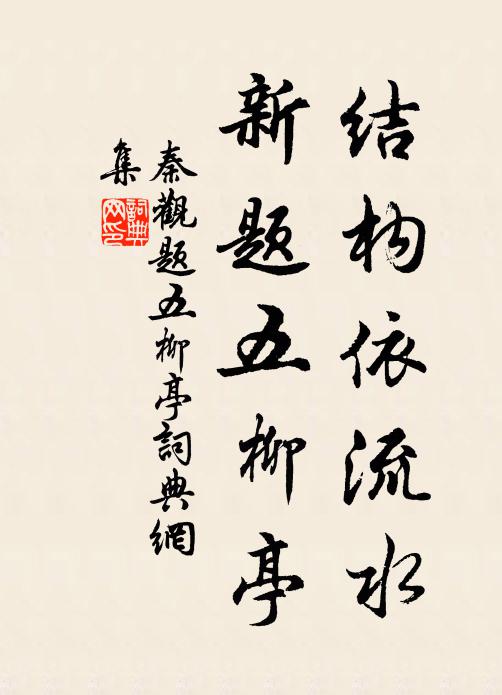 结构依流水
新题五柳亭
秦觀题五柳亭詞典網
集
詞典
网印